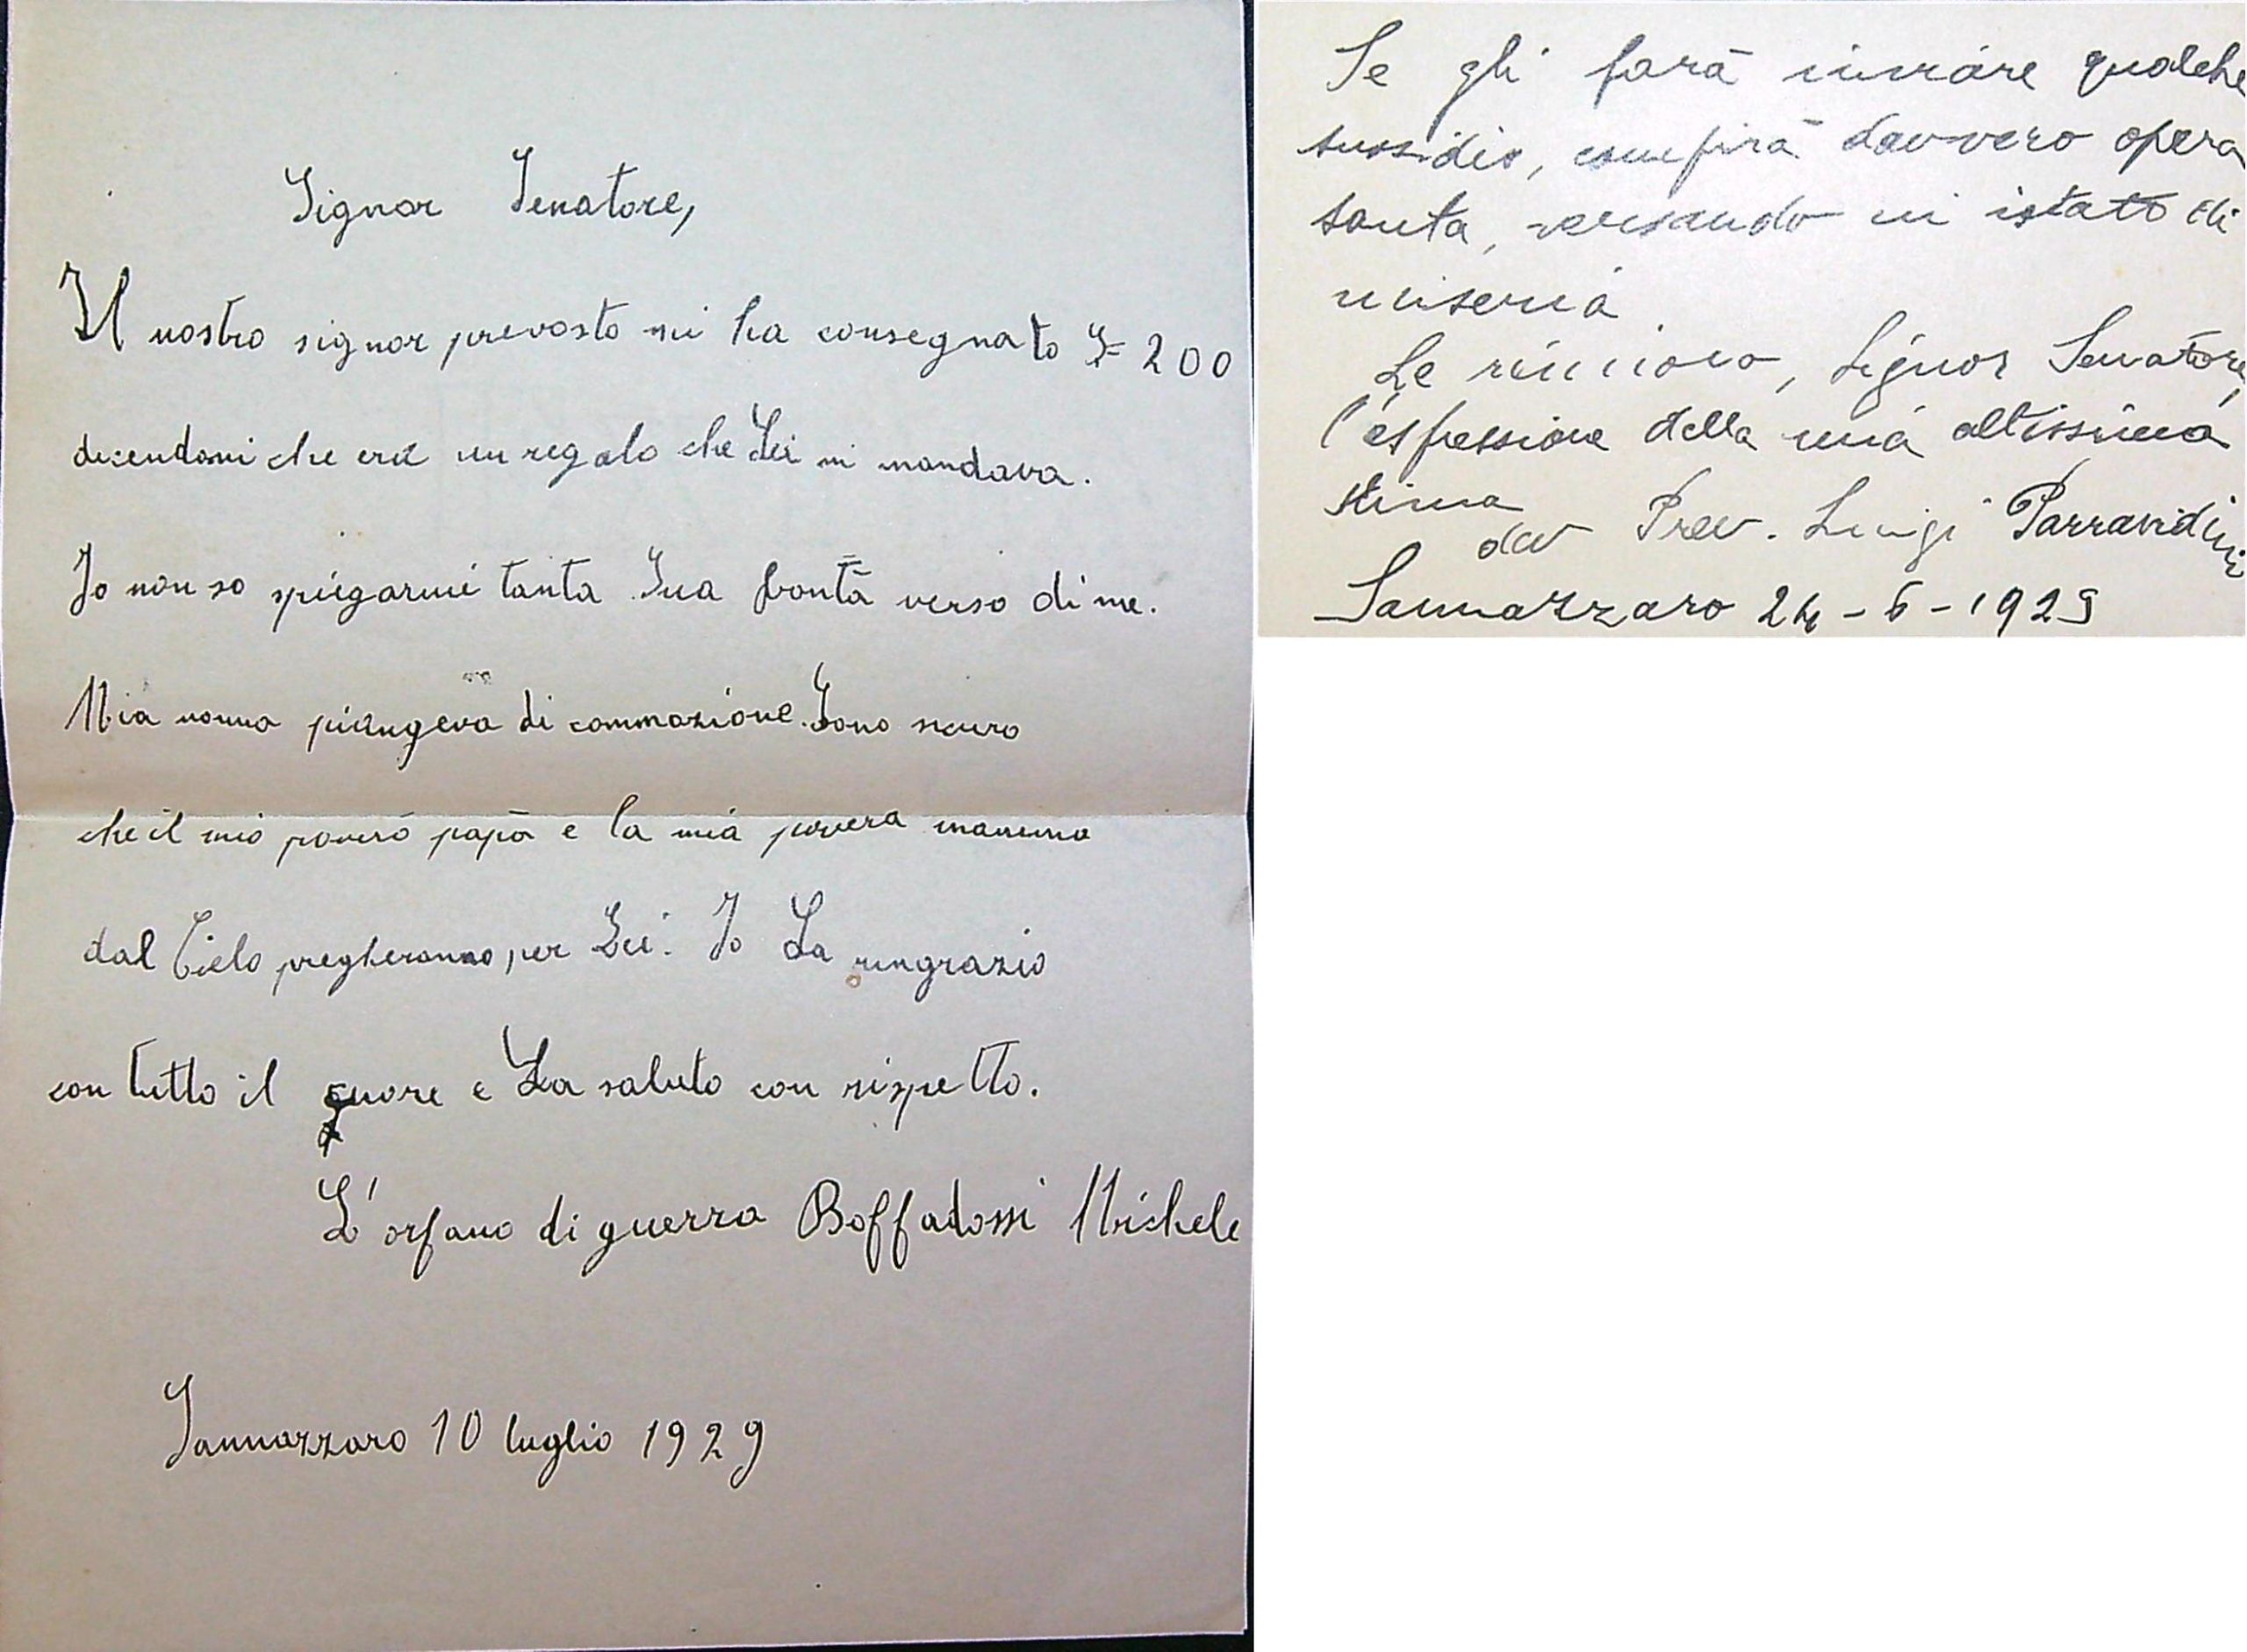 Signor Senatore,
Il nostro signor prevosto mi ha consegnato £ 200
dicendomi che era un regalo che Lei mi mandava.
Io non so spiegarmi tanta Sua bontà verso di me.
Mia nonna piangeva di commozione. Sono sicuro
che il mio povero papà e la mia povera mamma
dal Cielo pregheranno per Lei. Io La ringrazio
con tutto il cuore e La saluto con rispetto.
L'orfano di guerra Boffadossi Michele
Sannazzaro 10 luglio 1929
Se gli farà inviare qualche
sussidio, compirà davvero opera
santa, versando in istato di
miseria.
Le rinnovo, Signor Senatore,
l'espressione della mia altissima
stima
dev Prev. Luigi Parravidini
Sannazzaro 24-6-1929